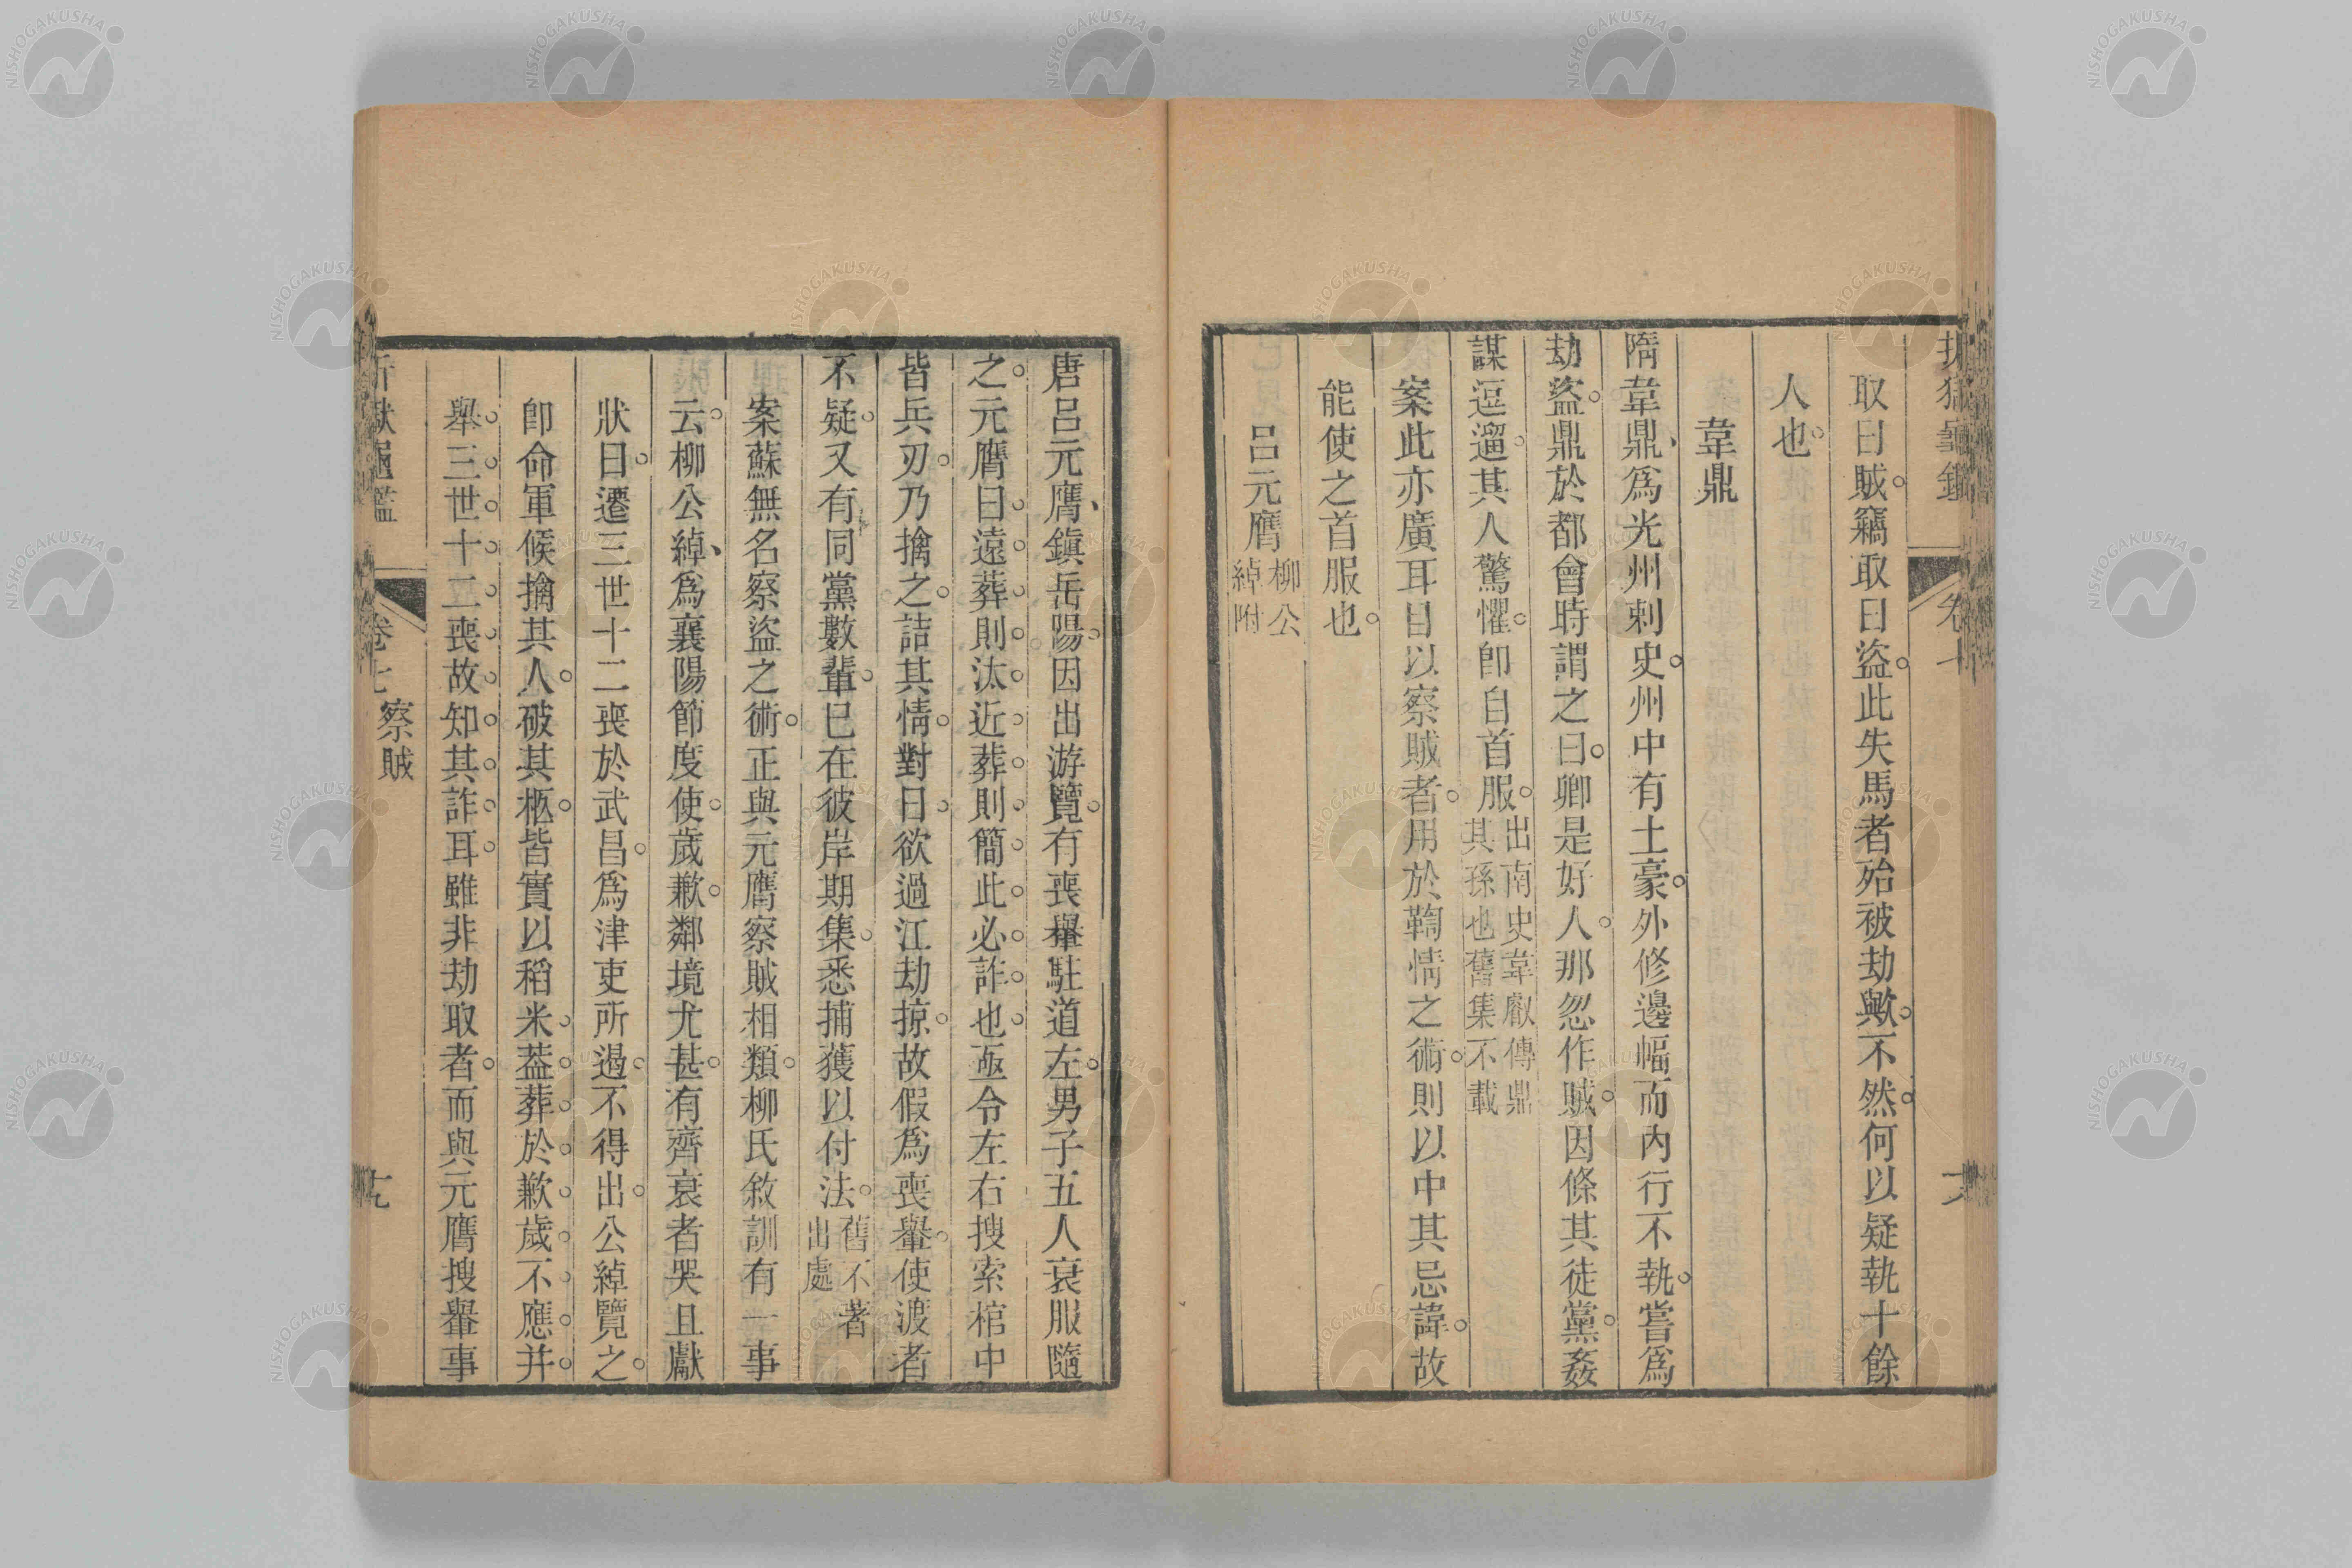 取曰賊竊取曰盜此失馬者殆被劫歟不然何以疑執十餘
人也
韋鼎
隋韋鼎爲光州刺史州中有土豪外修邊幅而內行不軌嘗爲
劫盜鼎於都會時謂之曰卿是好人那忽作賊因條其徒黨姦
謀逗遛其人驚懼卽自首服出南史韋叡傳鼎其孫也舊集不載
案此亦廣耳目以察賊者用於鞫情之術則以中其忌諱故
能使之首服也
呂元膺柳公綽附
唐呂元膺鎭岳陽因出游覽有喪轝駐道左男子五人衰服隨
之元膺曰遠葬則汰近葬則簡此必詐也亟令左右搜索棺中
皆兵刃乃擒之詰其情對曰欲過江劫掠故假爲喪轝使渡者
不疑又有同黨數輩已在彼岸期集悉捕獲以付法舊不著出處
案蘇無名察盜之術正與元膺察賊相類柳氏敘訓有一事
云柳公綽爲襄陽節度使歲歉鄰境尤甚有齊衰者哭且獻
狀曰遷三世十二喪於武昌爲津吏所遏不得出公綽覽之
卽命軍候擒其人破其柩皆實以稻米葢葬於歉歲不應并
舉三世十二喪故知其詐耳雖非劫取者而與元膺搜轝事
察賊